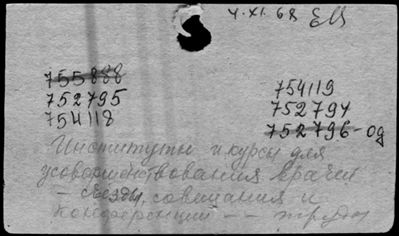 4.XI.68 ЕВ
755888
752795
754118
754119
752794
752796-Од
Институты и курсы для
усовершенствования врачей
- съезды, совещания и
конференции -- труды